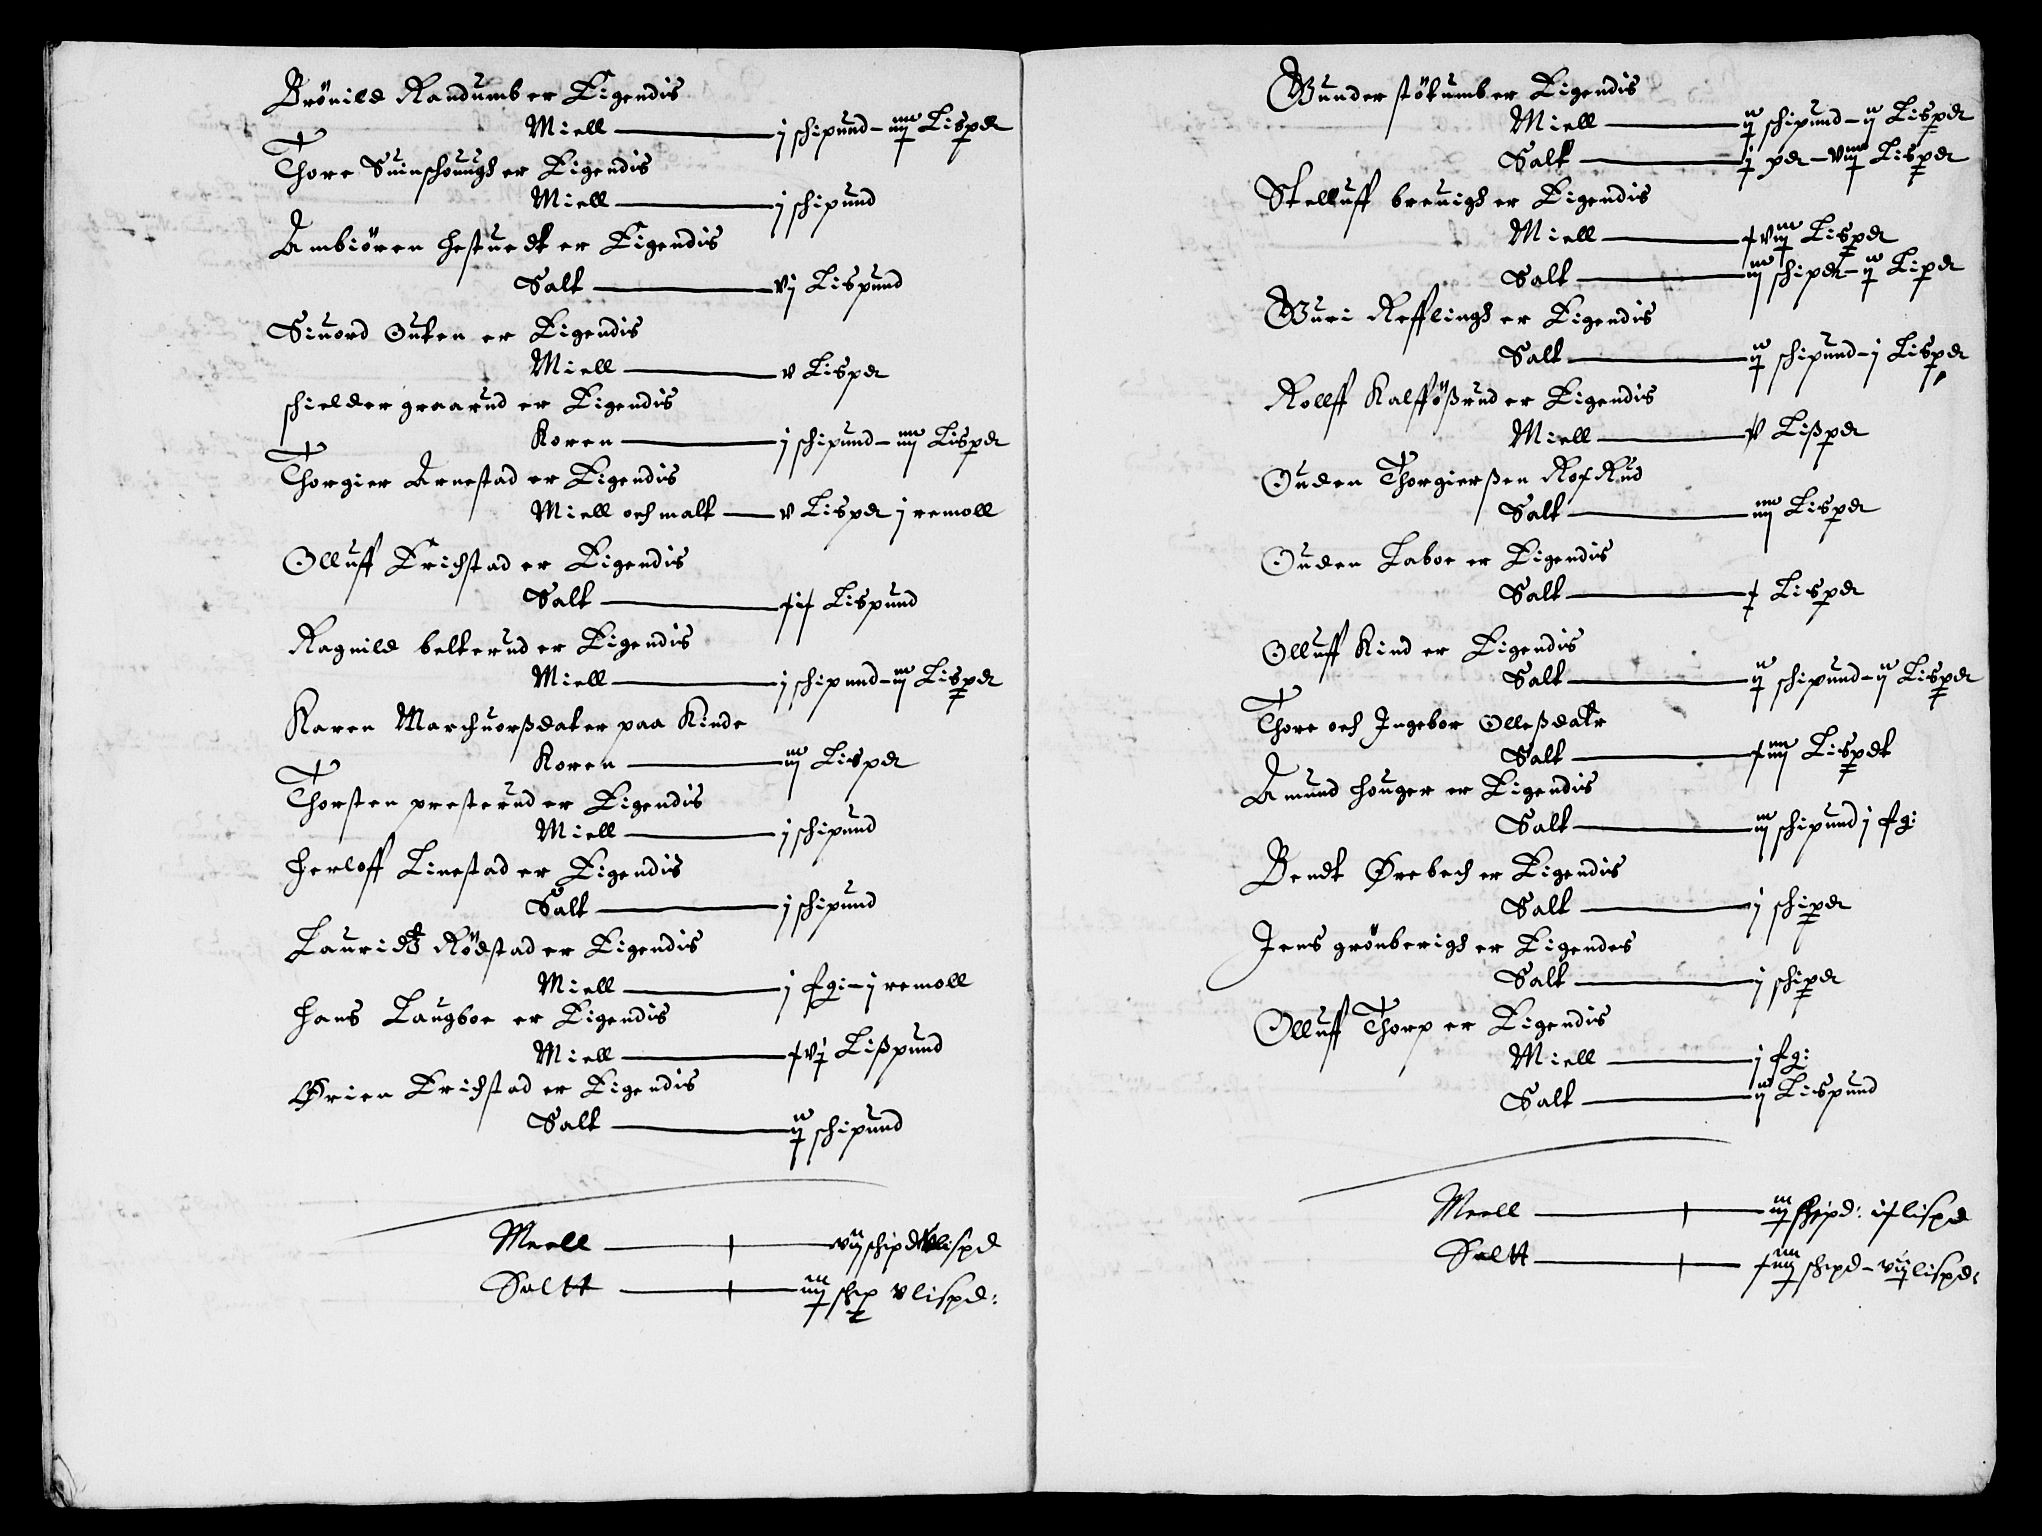 Brönild Randumb er Eigendis
Miell — j schipund – iiij Lispd
Thore Suinschougs er Eigendis
Miell — j schipund
Ambiören hestuedt er Eigendis
Salt — vj Lispund
Siuord Outen er Eigendis
Miell — v Lispd
schielder graarud er Eigendis
Koren — j schipund – iiij Lispd
Thorgier Arnestad er Eigendis
Miell och malt — v Lispd j remoll
Olluff Erichstad er Eigendis
Salt — Lispund
Ragnild belterud er Eigendis
Miell — j schipund – iij Lispd
Karen Marchuorßdater paa Kinde
Koren — iij Lispd
Thorsten presterud er Eigendis
Miell — j schipund
herloff Linestad er Eigendis
Salt — j schipund
Lauridtz Rödstad er Eigendis
Miell — j fgi – j remoll
hans Laugboe er Eigendis
Miell — Lißpund
Örien Erichstad er Eigendis
Salt — ij schipund
Meell — vij schipd lispd
Saltt — iiij schip v lispd:
Wunder stökumb er Eigendis
Miell — ij schipund – ij Lispd
Salt — j pd – viij Lispd
Stelluff breuigs er Eigendis
Miell — Lispd
Salt — iij schipd – ij Lipd
Wuri Refflings er Eigendis
Salt — ij schipund – j Lispd
Rollff Kalfføßrud er Eigendis
Miell — v Lißpd
Ouden Thorgierßen RofRud
Salt — iiij Lispd
Ouden Laboe er Eigendis
Salt — Lispd
Olluff Kind er Eigendis
Salt — ij schipund – ij Lispd
Thore och Ingebor Olleßdatr
Salt — Lispdt
Amund houger er Eigendis
Salt — iij schipund j fg:
Bendt Ørebech er Eigendis
Salt — j schipd
Jens grönberigs er Eigendes
Salt — j schipd
Olluff Thorp er Eigendis
Miell — j fg:
Salt — ij Lispund
Meell — iij schipd: lispd
Saltt — schipd – viij lispd: